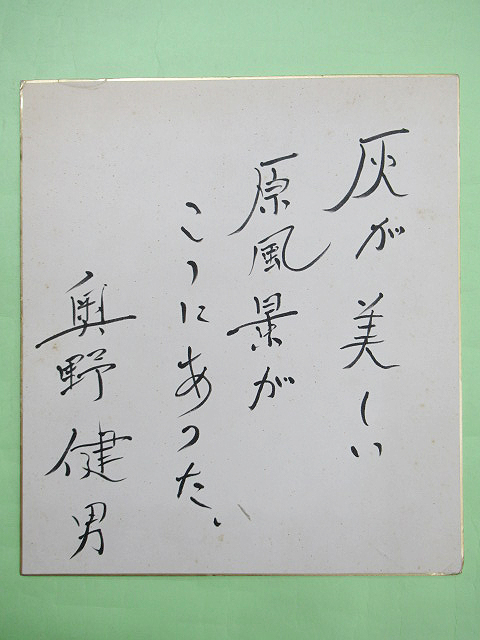 灰が美しい
原風景が
こゝにあった、
奥野健男